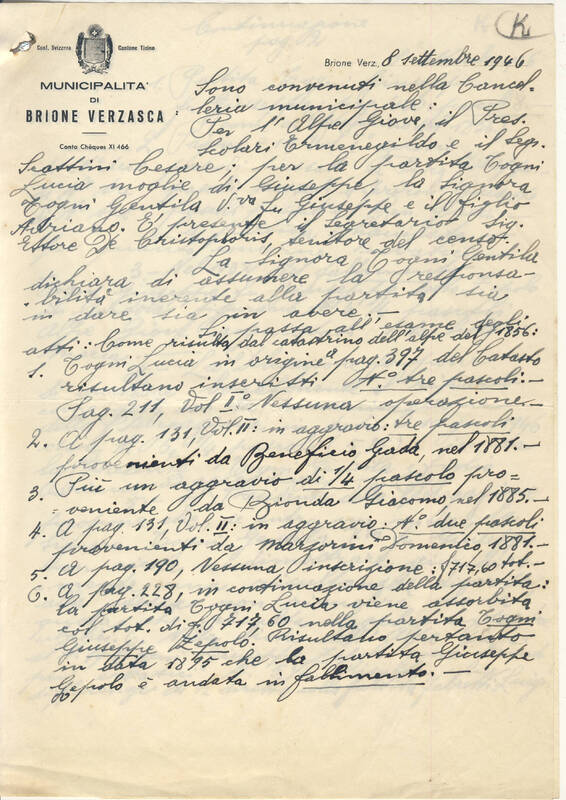 K
Conf. Svizzera Cantone Ticino
MUNICIPALITA'
DI
BRIONE VERZASCA
Conto Chèques XI 466
Brione Verz. 8 settembre 1946
Sono convenuti nella Cancel-
leria municipale:
Per l'Alpe Giove, il Pres.
Scolari Ermenegildo e il Segr.
Scattini Cesare; per la partita Togni
Lucia moglie di Giuseppe, la Signora
Togni Gentila V.va fu Giuseppe e il figlio
Adriano. E' presente il Segretario Sig.
Ettore De Cristoforis, tenitore del censo.
La Signora Togni Gentila
dichiara di assumere la responsa-
bilità inerente alla partita sia
in dare sia in avere.-
Si passa all'esame degli
atti: Come risulta dal catastrino dell'alpe del 1856:
1. Togni Lucia in origine a pag. 397 del Catasto
risultano inscritti N.° tre pascoli.-
Pag. 211, Vol II° Nessuna operazione.-
2. A pag. 131, Vol. II: in aggravio: tre pascoli
provenienti da Beneficio Gada, nel 1881.-
3. Più un aggravio di 1/4 pascolo pro-
veniente da Bionda Giacomo, nel 1885.-
4. A pag. 131, Vol. II: in aggravio: N.° due pascoli
provenienti da Marforini Domenico, 1881.-
5. A pag. 190, Nessuna inscrizione: 717,60 tot.-
6. A pag. 228, in continuazione della partita:
la partita Togni Lucia viene assorbita
col tot. di fr. 717,60 nella partita Togni
Giuseppe Zepolo. Risultano pertanto
in data 1895 che la partita Giuseppe
Zepolo è andata in fallimento.-